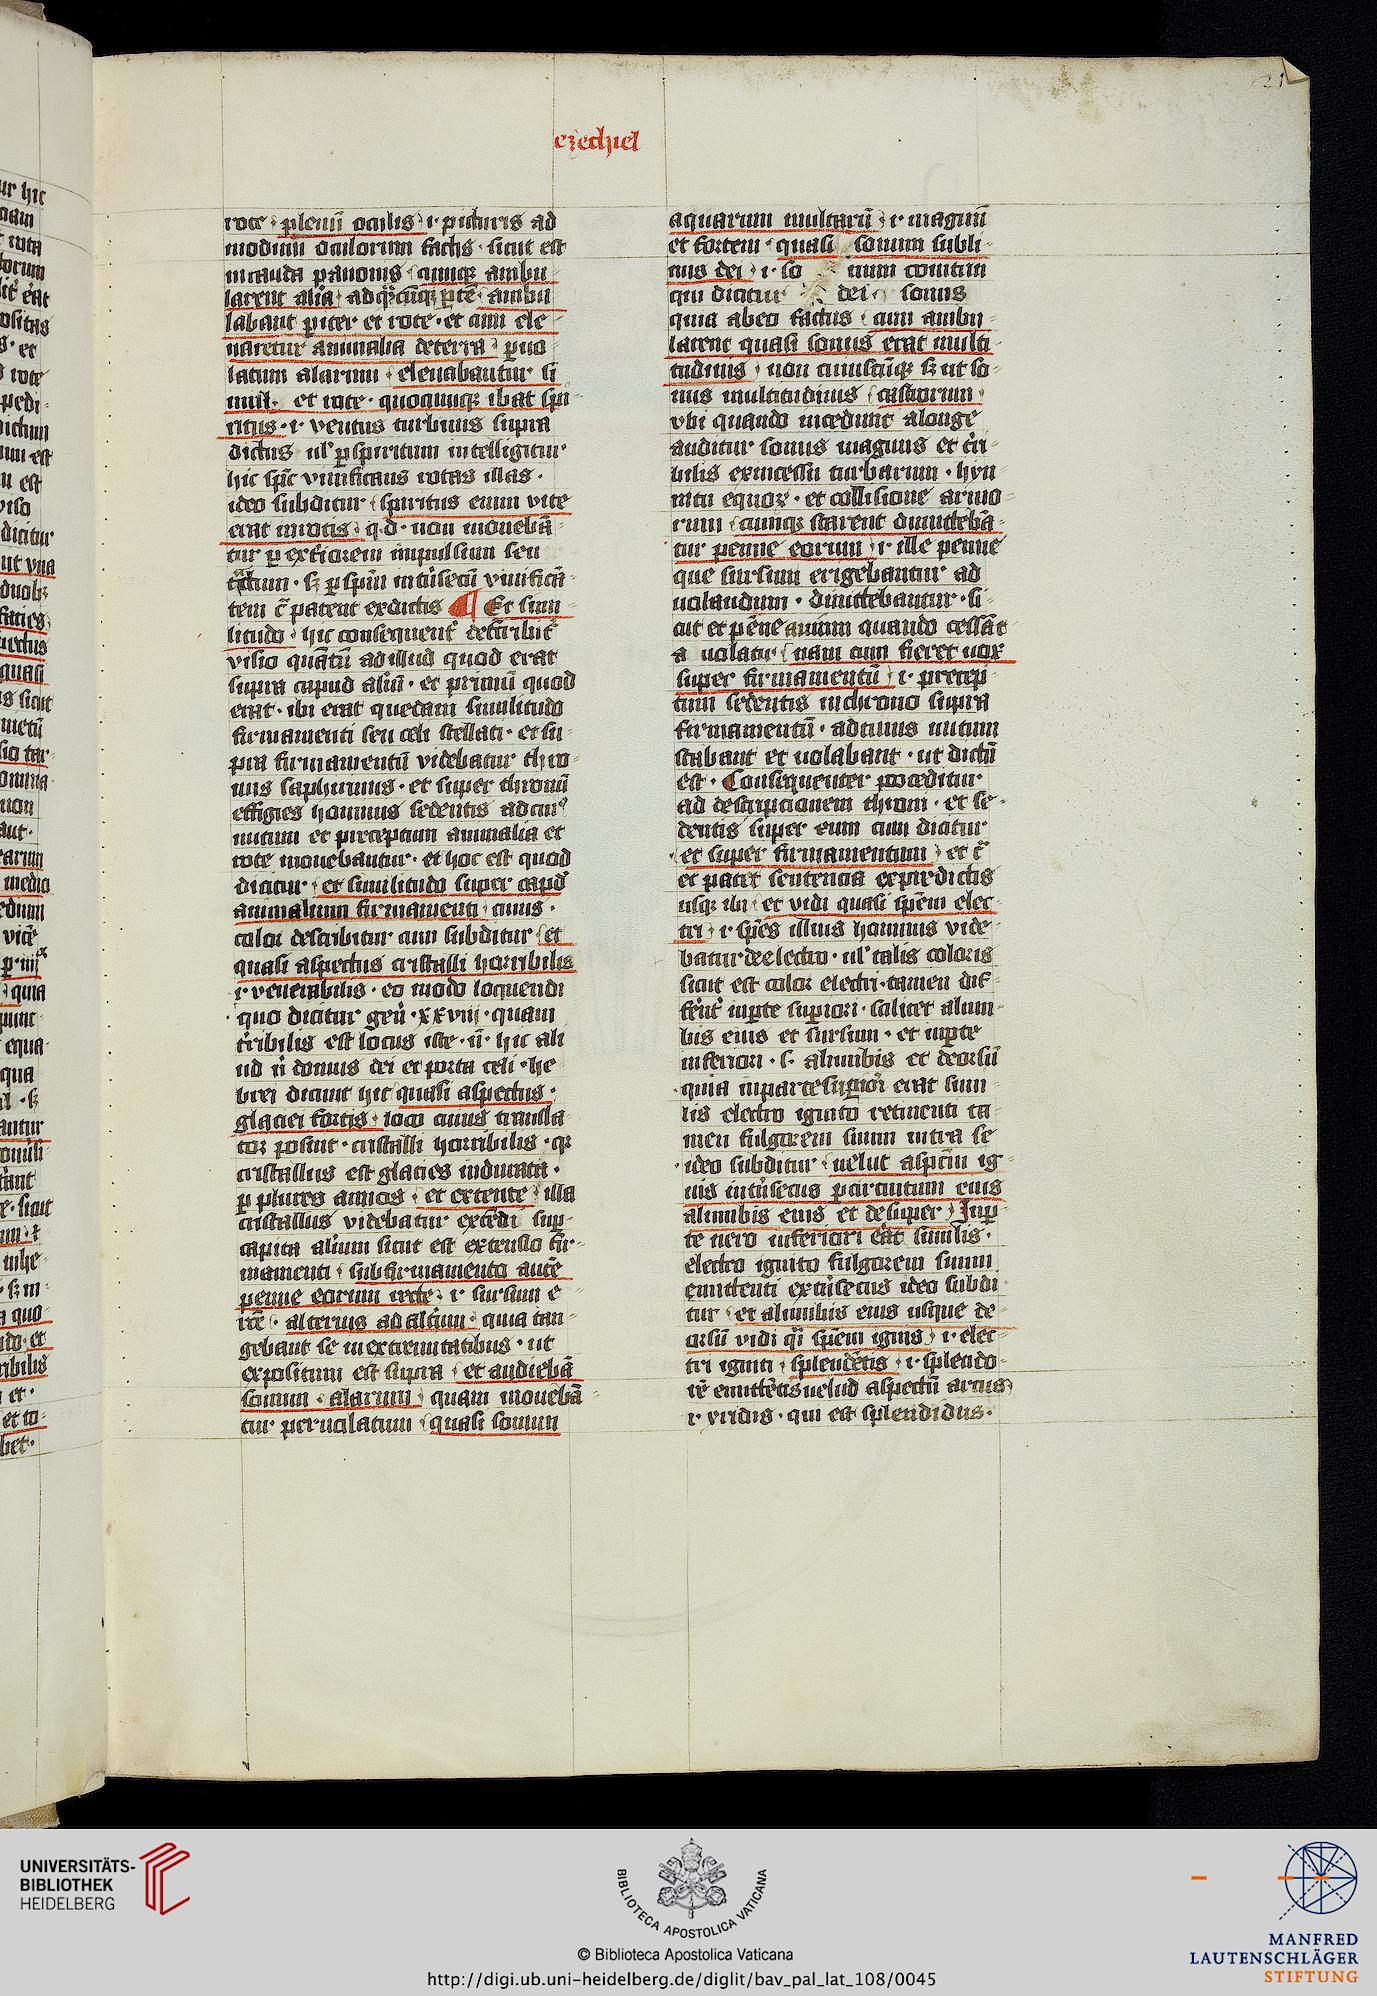 21
ezechiel
rote · plenũ oculis · i· picturis ad
modum oculorum factis · sicut est
in cauda pavonis · cumqz ambu
larent alia · ad q̃cũqz ꝑtẽ · ambu
labant ꝑiter et rote · et cum ele
varetur animalia de terra · ꝑ vo
latum alarum · elevabantur si
mul · et rote · quocumqz ibat spi
ritus · i· ventus turbinis supra
dictus ul' ꝑ spiritum intelligitur
hic spũs vivificans rotas illas ·
ideo subditur · spiritus enim vite
erat in rotis · q·d· non movebã
tur ꝑ exteriorem impulsum seu
tractum · sz ꝑ spũm intͥsecũ vivificã
tem c̃ patent ex dictis ¶ Et simi
litudo · hic consequent' describit'
visio quãtũ ad illud quod erat
supra capud aliũ · et primũ quod
erat · ibi erat quedam similitudo
firmamenti seu celi stellati · et su
pra firmamentũ videbatur thro
nus saphirinus · et super thronũ
effigies hominis sedentis ad cui'
nutum et preceptum animalia et
rote movebantur · et hoc est quod
dicitur · et similitudo super capd'
animalium firmamenti · cuius ·
color describitur cum subditur · et
quasi aspectus cristalli horribilis
i· venerabilis · eo modo loquendi
quo dicitur geñ · xxviii · quam
t'ribilis est locus iste · ñ · hic ali
ud ñ domus dei et porta celi · he
brei dicunt hic quasi aspectus ·
glaciei fortis · loco cuius transla
tor posuit · cristalli horribilis · qr
cristallus est glacies indurata ·
ꝑ plures annos · et extente · illa
cristallus videbatur extẽdi suꝑ
capita alium sicut est extensio fir
mamenti · sub firmamento autẽ
penne eorum recte · i· sursum e
recte · alterius ad alt'um · quia tan
gebant se in extremitatibus · ut
expositum est supra · et audiebã
sonum · alarum · quam movebã
tur per volatum · quasi sonum
aquarum multarũ · i· magnũ
et fortem · quasi sonum subli
mis dei · i· so num tonitrui
qui dicitur dei sonus
quia ab eo factus · cum ambu
larent quasi sonus erat multi
tudinis · non cuiuscũqz sz ut so
nus multitudinis · castrorum ·
ubi quando incedunt a longe
auditur sonus magnus et t'ri
bilis ex incessu turbarum · hyn
nitu equoz · et collisione armo
rum · cumqz starent dimittebã
tur penne eorum · i· ille penne
que sursum erigebantur ad
volandum · dimittebantur · si
cut et pẽne avium quando cessãt
a volatu · nam cum fieret vox
super firmamentũ · i· precep
tum sedentis in throno supra
firmamentũ · ad cuius nutum
stabant et volabant · ut dictũ
est · Consequenter proceditur
ad descriptionem throni · et se
dentis super eum cum dicitur
et super firmamentum · et c̃
et patet sentencia ex p'dictis
usqz ibi · et vidi quasi spẽm elec
tri · i· spẽs illius hominis vide
batur de electro · ul' talis coloris
sicut est color electri · tamen dif
fert' in ꝑte suꝑiori · scilicet a lum
bis eius et sursum · et in ꝑte
inferiori · s· a lumbis et deorsũ
quia in parte suꝑiori erat simi
lis electro ignito retinenti ta
men fulgorem suum intra se
ideo subditur · velut aspectũ ig
nis intͥsecus ꝑ circuitum eius
a lumbis eius et desuper · In ꝑ
te vero inferiori erat similis ·
electro ignito fulgorem suum
emittenti extͥsecus ideo subdi
tur · et a lumbis eius usque de
orsũ vidi q̃i spẽm ignis · i· elec
tri igniti · splendẽtis · i· splendo
rẽ emittẽtis velud aspectũ arcus
i· yridis · qui est splendidus ·
UNIVERSITÄTS-
BIBLIOTHEK
HEIDELBERG
BIBLIOTECA APOSTOLICA VATICANA
© Biblioteca Apostolica Vaticana
http://digi.ub.uni-heidelberg.de/diglit/bav_pal_lat_108/0045
MANFRED
LAUTENSCHLÄGER
STIFTUNG